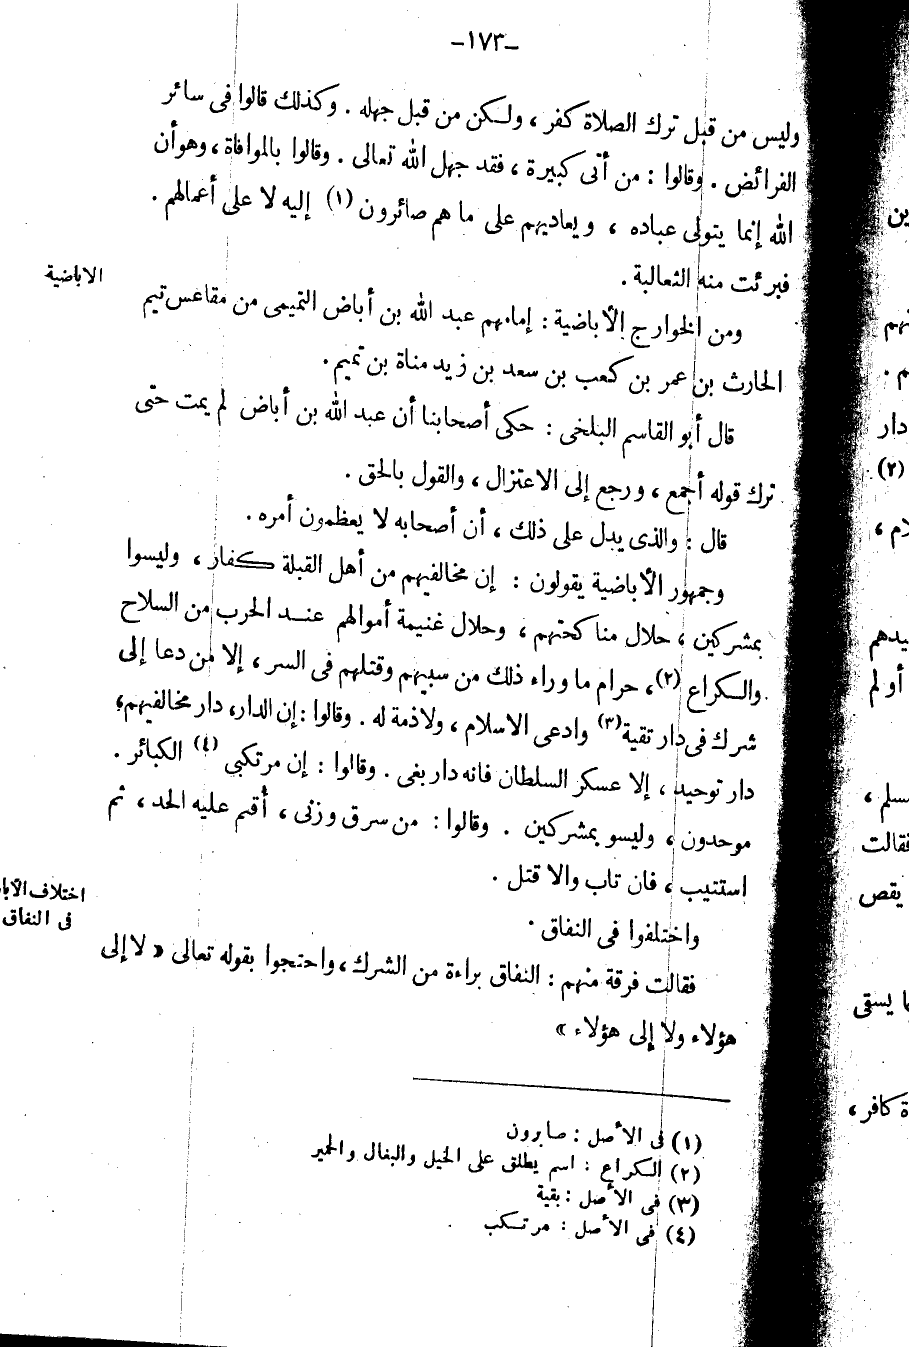 -١٧٣-
وليس من قبل ترك الصلاة كفر ، ولكن من قبل جهله . وكذلك قالوا فى سائر
الفرائض . وقالوا : من أتى كبيرة ، فقد جهل الله تعالى . وقالوا بالموافاة ، وهو أن
الله إنما يتولى عباده ، ويعاديهم على ما هم صائرون (١) إليه لا على أعمالهم .
فبرئت منه الثعالبة .
الاباضية
ومن الخوارج الأباضية : إمامهم عبد الله بن أباض التميمى من مقاعس تيم
الحارث بن عمر بن كعب بن سعد بن زيد مناة بن تميم .
قال أبو القاسم البلخى : حكى أصحابنا أن عبد الله بن أباض لم يمت حتى
ترك قوله أجمع ، ورجع إلى الاعتزال ، والقول بالحق .
قال : والذى يدل على ذلك ، أن أصحابه لا يعظمون أمره .
وجمهور الأباضية يقولون : إن مخالفيهم من أهل القبلة كفار ، وليسوا
بمشركين ، حلال مناكحتهم ، وحلال غنيمة أموالهم عند الحرب من السلاح
والكراع (٢) ، حرام ما وراء ذلك من سبيهم وقتلهم فى السر ، إلا من دعا إلى
شرك فى دار تقية (٣) وادعى الاسلام ، ولاذمة له . وقالوا : إن الدار ، دار مخالفيهم ،
دار توحيد ، إلا عسكر السلطان فانه دار بغى . وقالوا : إن مرتكبى (٤) الكبائر .
موحدون ، وليسو بمشركين . وقالوا : من سرق وزنى ، أقيم عليه الحد ، ثم
استتيب ، فان تاب والا قتل .
اختلاف الآبا
فى النفاق
واختلفوا فى النفاق .
فقالت فرقة منهم : النفاق براءة من الشرك ، واحتجوا بقوله تعالى « لا إلى
هؤلاء ولا إلى هؤلاء »
(١) فى الأصل : صابرون
(٢) الكراع : اسم يطلق على الخيل والبغال والحمير
(٣) فى الأصل : بقية
(٤) فى الأصل : مرتكب
ين
نهم
م .
دار
(٢)
لام ،
يدهم
أو لم
سلم ،
فقالت
يقص
ا يسقى
ة كافر ،